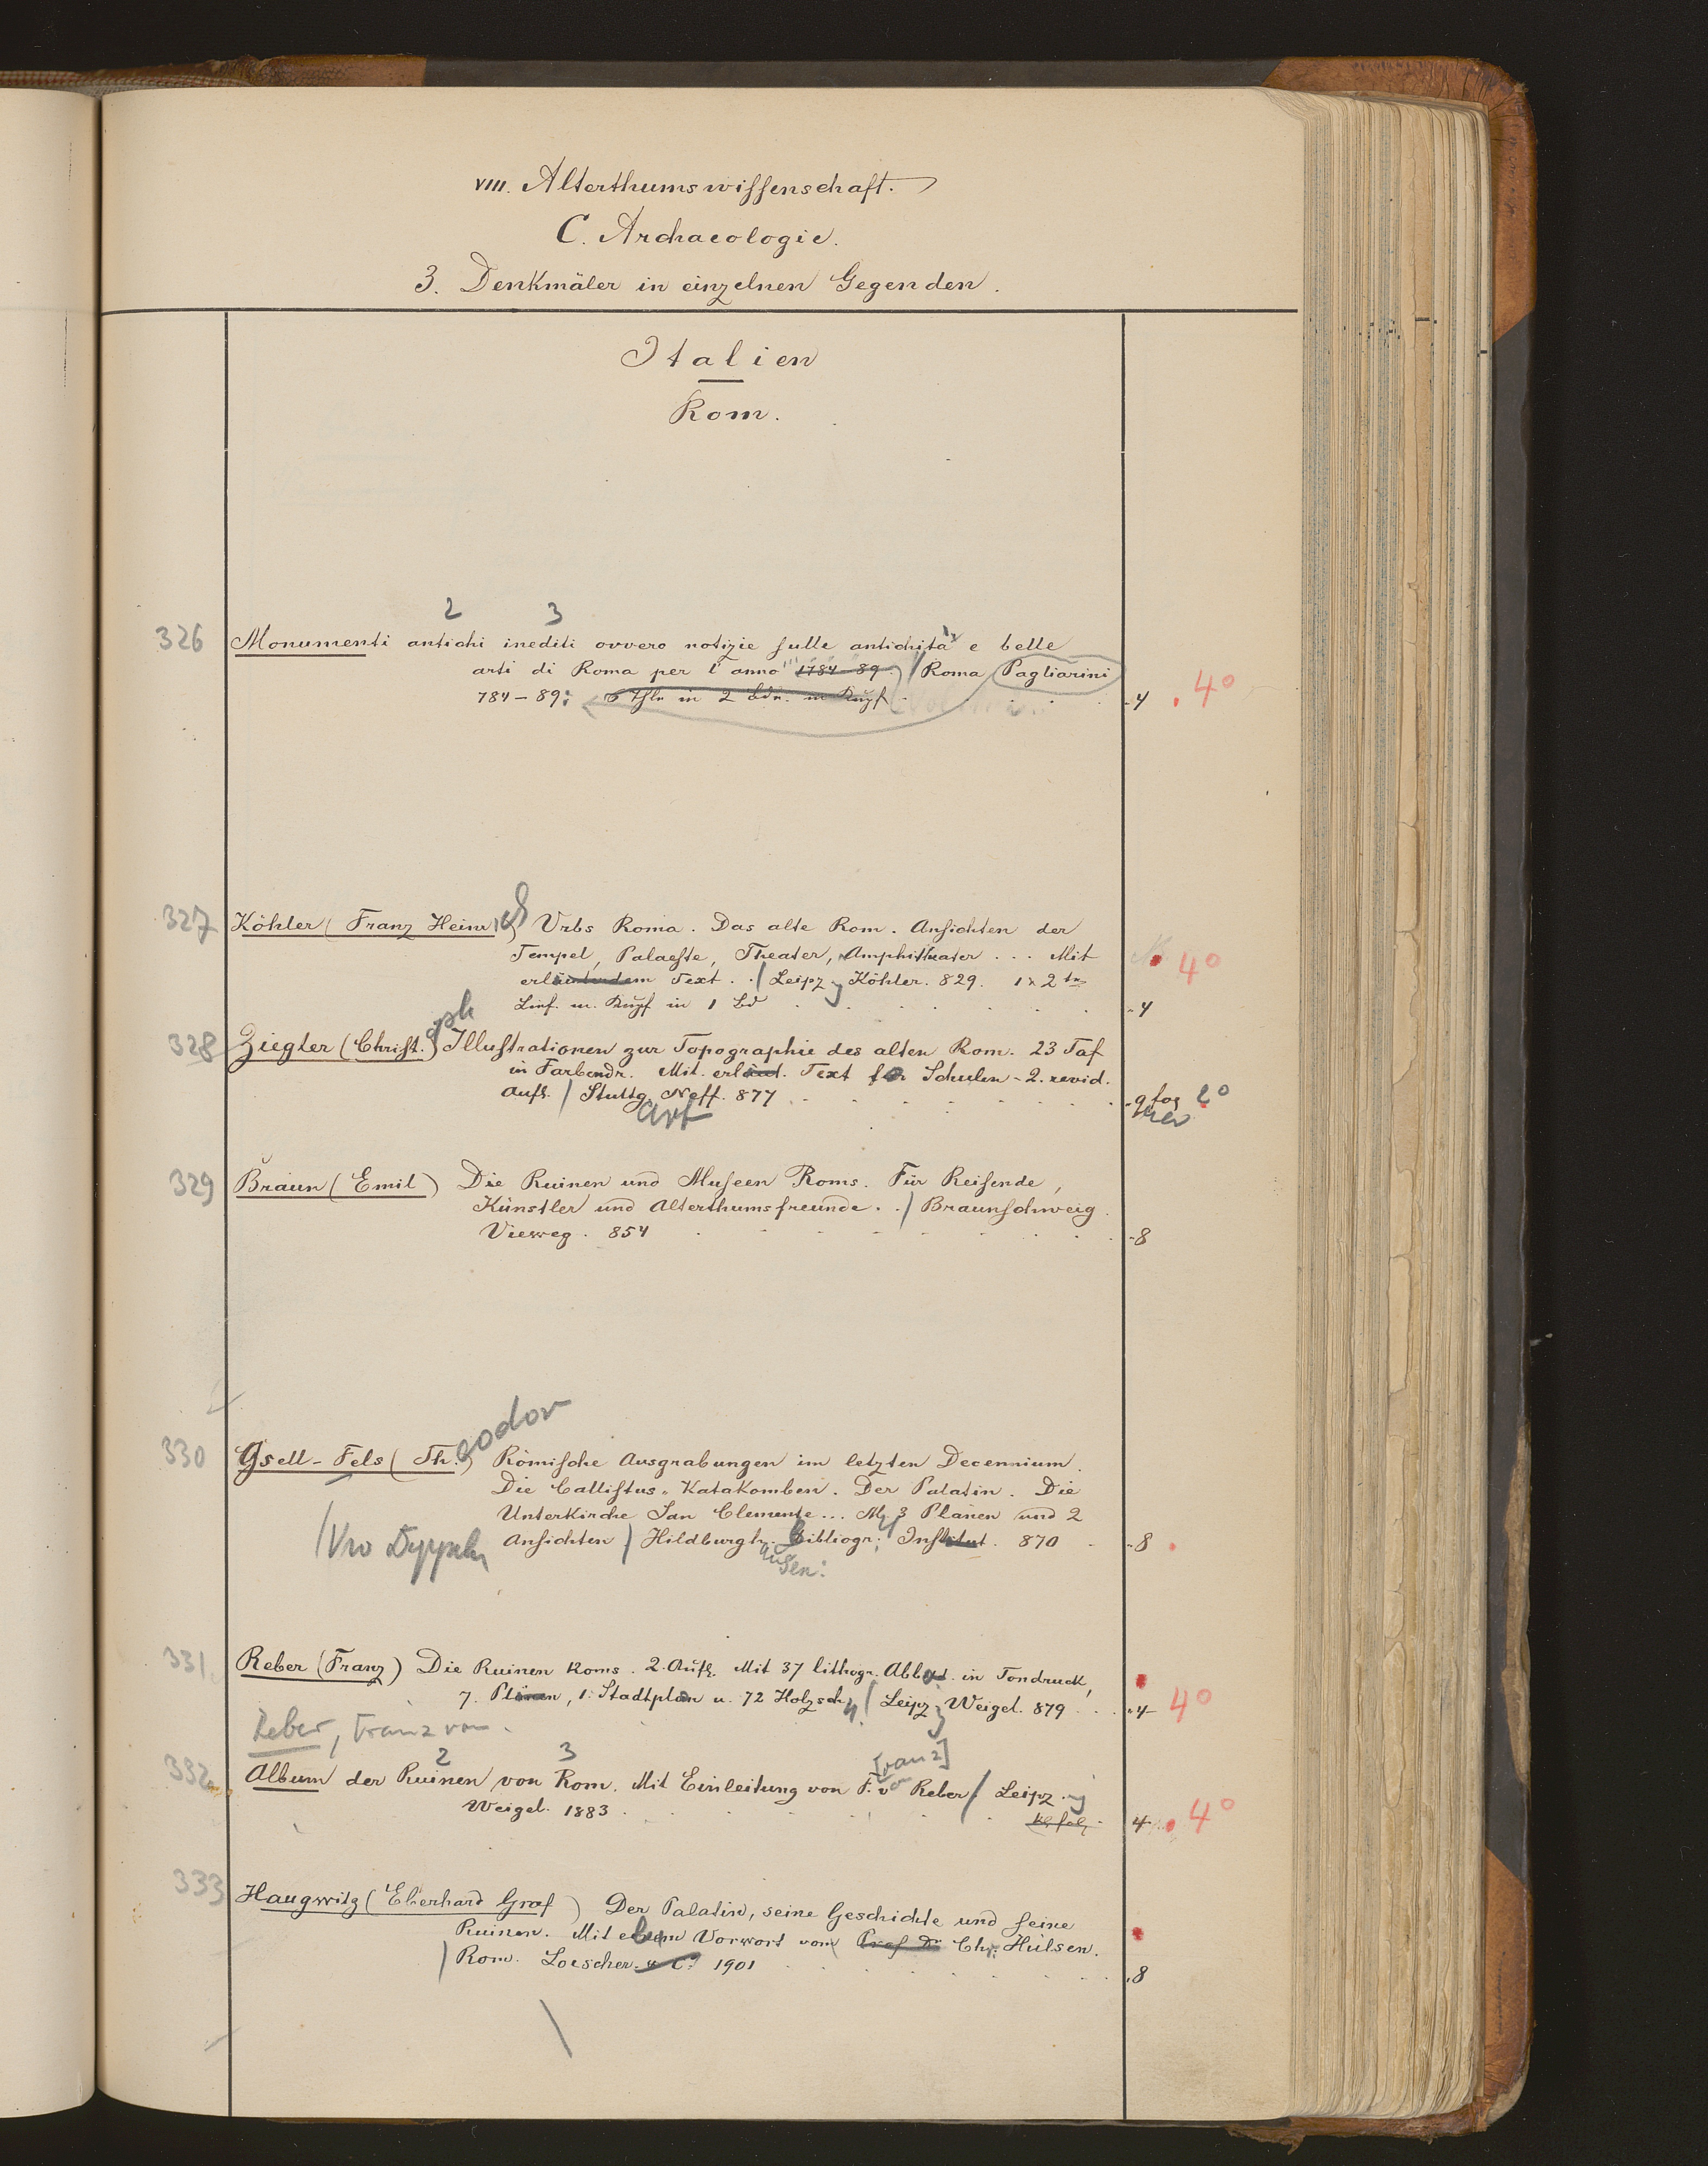 VIII. Alterthumswissenschaft.
C. Archaeologie.
3. Denkmäler in einzelnen Gegenden.
Italien
Rom.
2 3
326 Monumenti antichi inediti ovvero notizie sulle antichità e belle
arti di Roma per l'anno 1784-89.) / Roma Pagliarini
784-89: 5 Thle in 2 Bdn. m Kupf. 4 4°
327 Köhler (Franz Heinrich) Urbs Roma. Das alte Rom. Ansichten der
Tempel, Palaeste, Theater, Amphitheater ... Mit
erläuterndem Text. / Leipz. Köhler. 829. 4°
Lief. m. Kupf in 1 Bd 4
328 Ziegler (Christ.oph) Illustrationen zur Topographie des alten Rom. 23 Taf
in Farbendr. Mit erläut. Text für Schulen - 2. revid.
Aufl. / Stuttg. Neff. 877 2°
art
329 Braun (Emil) Die Ruinen und Museen Roms. Für Reisende,
Künstler und Alterthumsfreunde. / Braunschweig.
Vieweg. 854 8
330 Gsell-Fels (Th.eodor) Römische Ausgrabungen im letzten Decennium.
Die Callistus-Katakomben. Der Palatin. Die
Unterkirche San Clemente ... M. 3 Plänen und 2
Ansichten / Hildburgh. Bibliogr. Institut. 870 8
ausen:
331 Reber (Franz) Die Ruinen Roms. 2. Aufl. Mit 37 lithogr. Abbild. in Tondruck,
7. Plänen, 1. Stadtplan u. 72 Holzsch. / Leipz. Weigel. 879 4 4°
Reber, Franz von.
2 3 [ranz]
332 Album der Ruinen von Rom. Mit Einleitung von F. von Reber. / Leipz.
Weigel. 1883. kl. fol. 4 4°
333 Haugwitz (Eberhard Graf) Der Palatin, seine Geschichte und seine
Ruinen. Mit einem Vorwort von Prof Dr Chr. Hülsen.
/ Rom. Loescher. u Co 1901 8